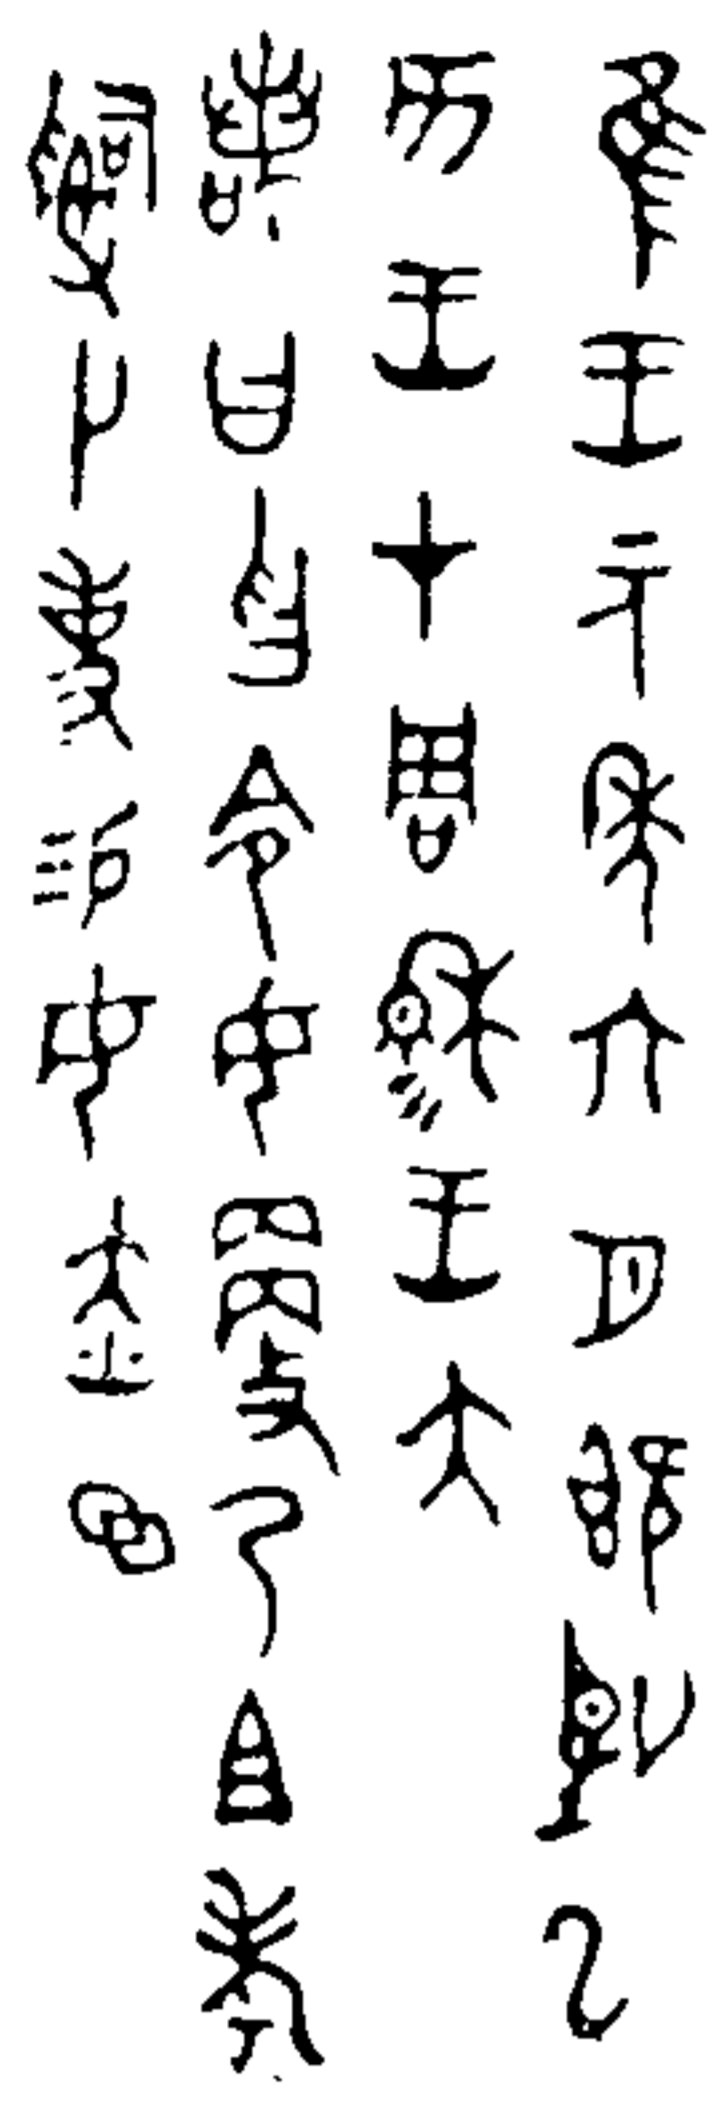 隹王元年六月既望乙
亥王才周穆王大
若曰曶令女更乃且考
𤔲卜事易女赤⊖